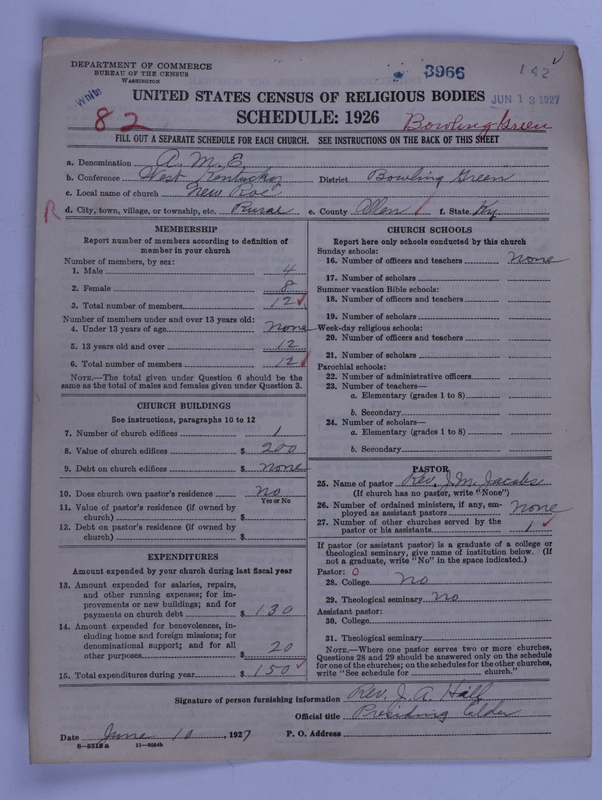 DEPARTMENT OF COMMERCE
BUREAU OF THE CENSUS
WASHINGTON
3966
142
White
82
UNITED STATES CENSUS OF RELIGIOUS BODIES
JUN 13 1927
SCHEDULE: 1926
Bowling Green
FILL OUT A SEPARATE SCHEDULE FOR EACH CHURCH. SEE INSTRUCTIONS ON THE BACK OF THIS SHEET
a. Denomination A. M. E.
b. Conference West Kentucky District Bowling Green
c. Local name of church New Roe
R d. City, town, village, or township, etc. Rural e. County Allen f. State Ky.
MEMBERSHIP
Report number of members according to definition of
member in your church
Number of members, by sex:
1. Male 4
2. Female 8
3. Total number of members 12
Number of members under and over 13 years old:
4. Under 13 years of age None
5. 13 years old and over 12
6. Total number of members 12
NOTE.—The total given under Question 6 should be the
same as the total of males and females given under Question 3.
CHURCH BUILDINGS
See instructions, paragraphs 10 to 12
7. Number of church edifices 1
8. Value of church edifices $ 200
9. Debt on church edifices $ None
10. Does church own pastor's residence No
Yes or No
11. Value of pastor's residence (if owned by
church) $
12. Debt on pastor's residence (if owned by
church) $
EXPENDITURES
Amount expended by your church during last fiscal year
13. Amount expended for salaries, repairs,
and other running expenses; for im-
provements or new buildings; and for
payments on church debt $ 130
14. Amount expended for benevolences, in-
cluding home and foreign missions; for
denominational support; and for all
other purposes $ 20
15. Total expenditures during year $ 150
CHURCH SCHOOLS
Report here only schools conducted by this church
Sunday schools:
16. Number of officers and teachers None
17. Number of scholars
Summer vacation Bible schools:
18. Number of officers and teachers
19. Number of scholars
Week-day religious schools:
20. Number of officers and teachers
21. Number of scholars
Parochial schools:
22. Number of administrative officers
23. Number of teachers—
a. Elementary (grades 1 to 8)
b. Secondary
24. Number of scholars—
a. Elementary (grades 1 to 8)
b. Secondary
PASTOR
25. Name of pastor Rev. J. M. Jacobs
(If church has no pastor, write "None")
26. Number of ordained ministers, if any, em-
ployed as assistant pastors None
27. Number of other churches served by the
pastor or his assistants 1
If pastor (or assistant pastor) is a graduate of a college or
theological seminary, give name of institution below. (If
not a graduate, write "No" in the space indicated.)
Pastor: 0
28. College No
29. Theological seminary No
Assistant pastor:
30. College
31. Theological seminary
NOTE.—Where one pastor serves two or more churches,
Questions 28 and 29 should be answered only on the schedule
for one of the churches; on the schedules for the other churches,
write "See schedule for church."
Signature of person furnishing information Rev. J. A. Hall
Official title Presiding Elder
Date June 10, 1927 P. O. Address